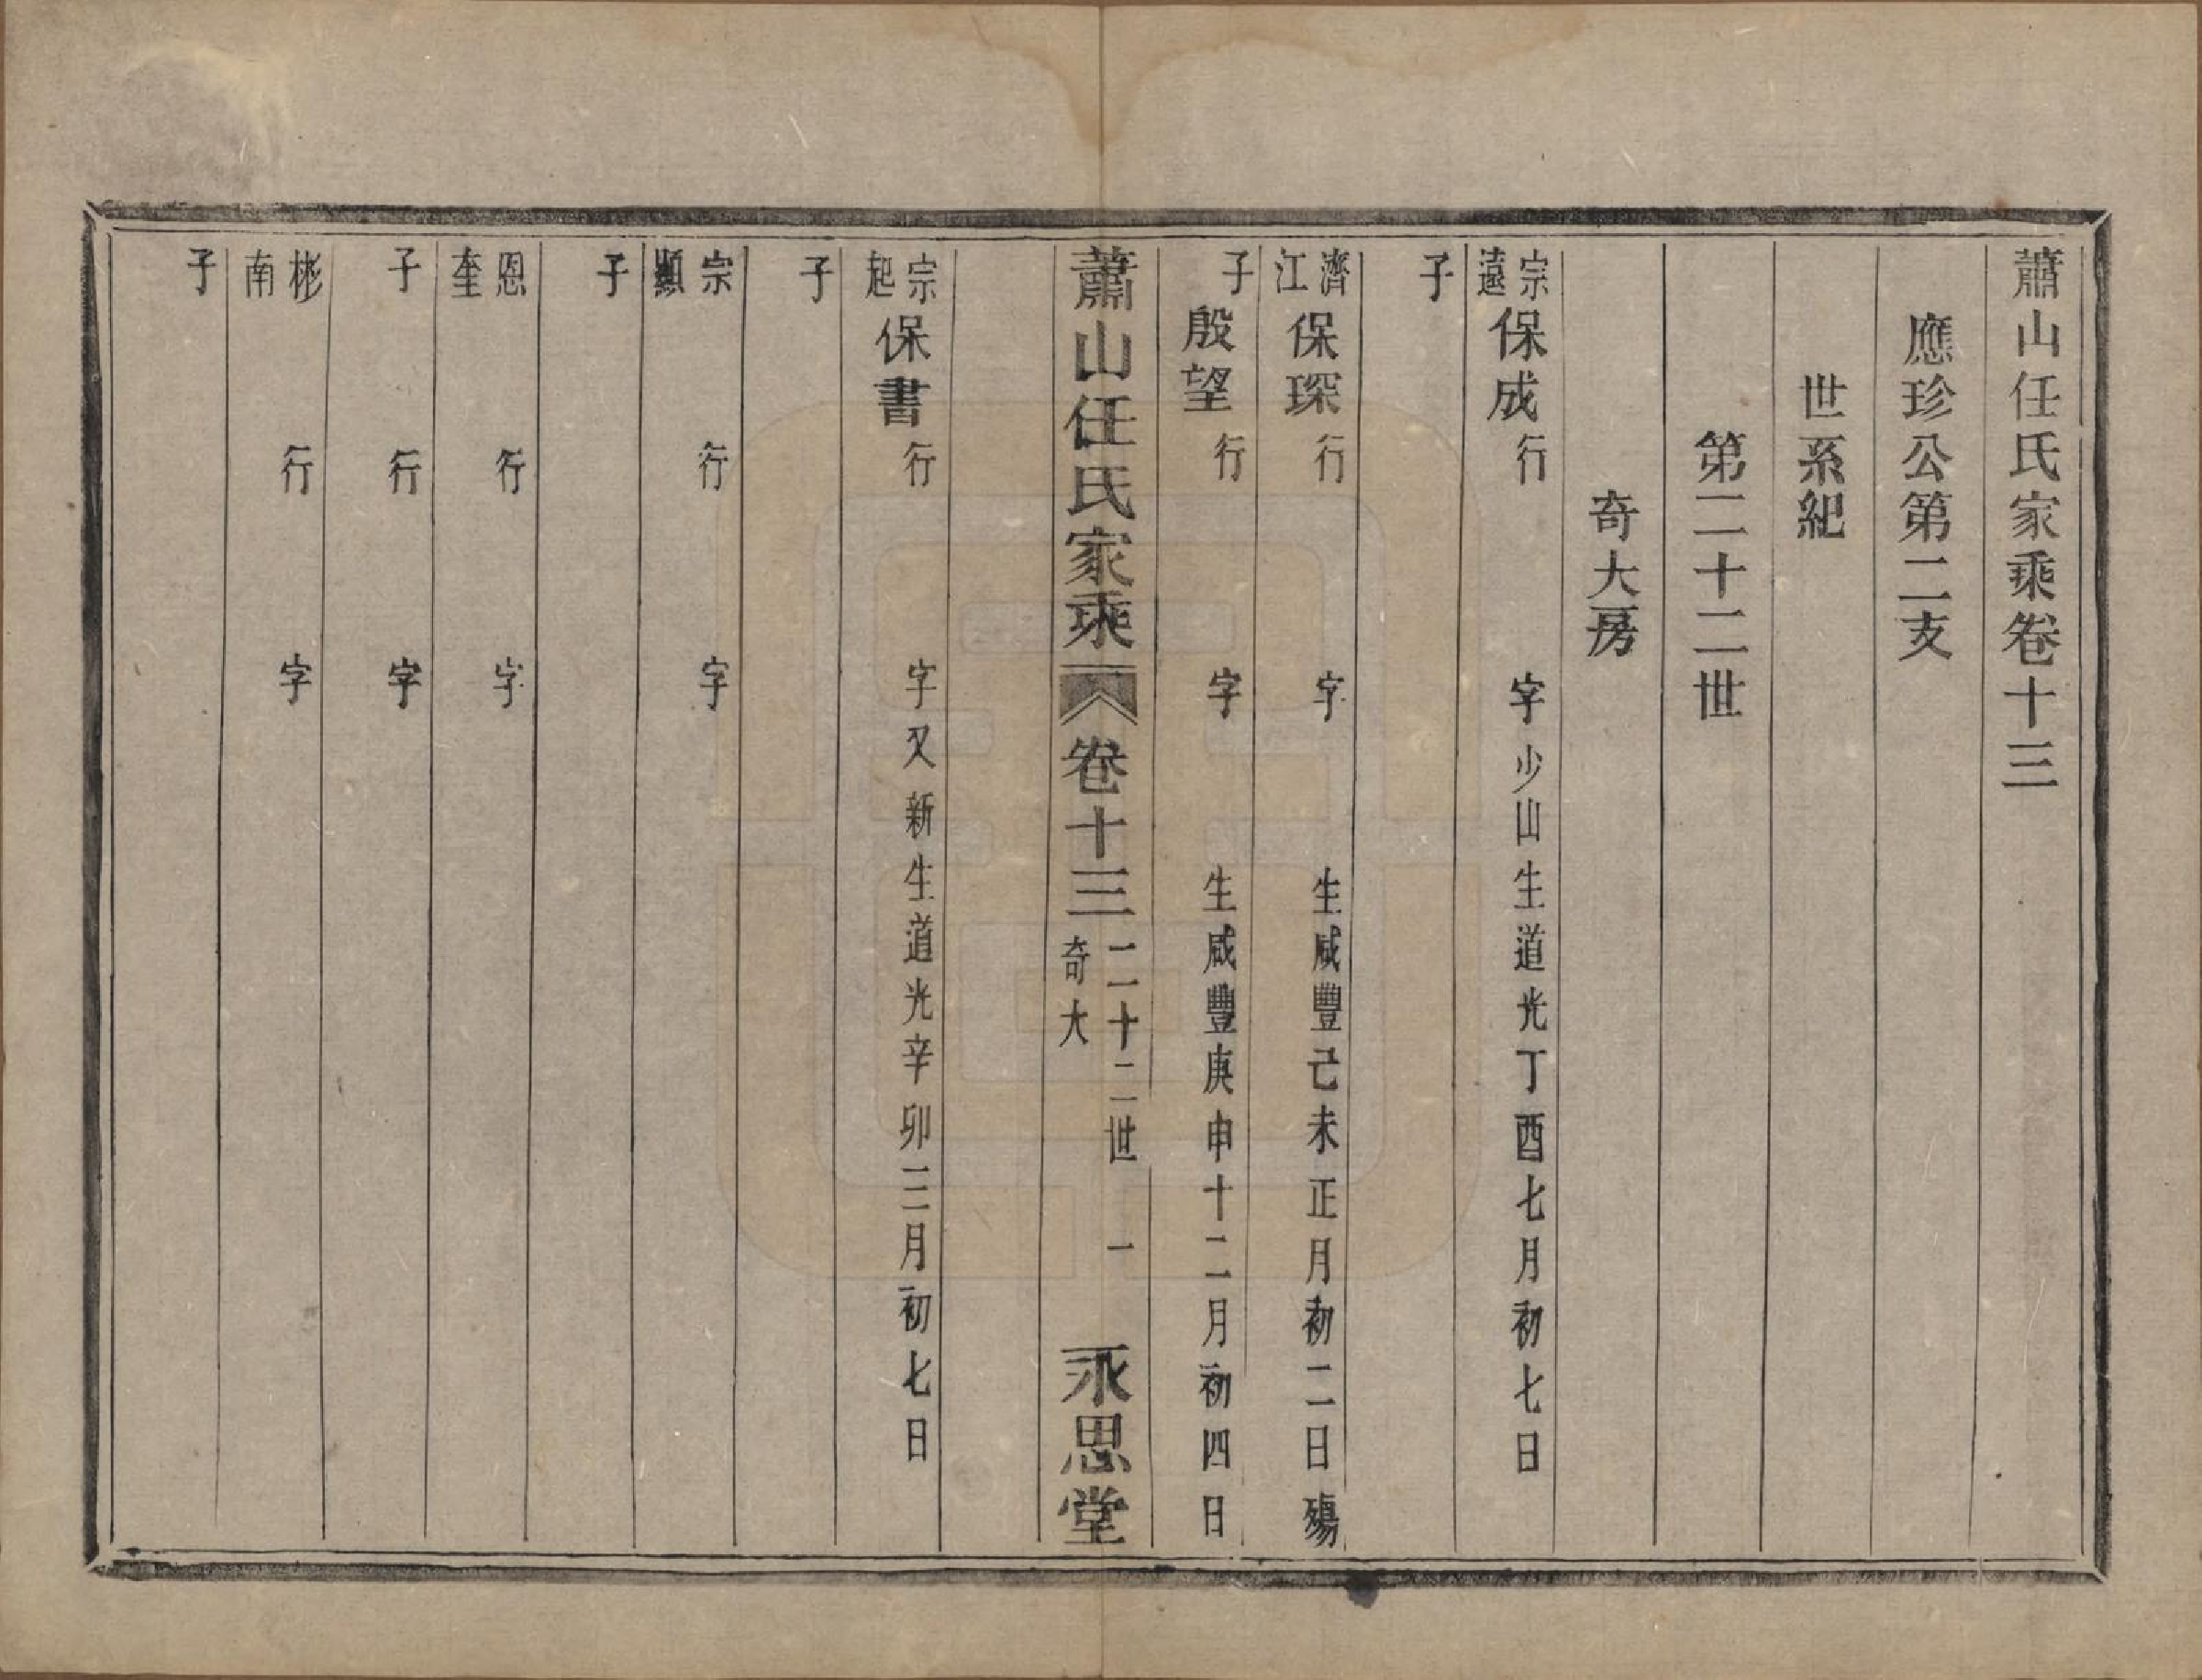 蕭山任氏家乘卷十三
應珍公第二支
世系紀
第二十二世
奇大房
宗遠子 保成 行 字少山生道光丁酉七月初七日
濟江子 保琛 行 字 生咸豐己未正月初二日殤
殷望 行 字 生咸豐庚申十二月初四日
蕭山任氏家乘 卷十三 二十二世 奇大 一 永思堂
宗起子 保書 行 字又新生道光辛卯三月初七日
宗顯子 行 字
恩奎子 行 字
行 字
彬南子 行 字